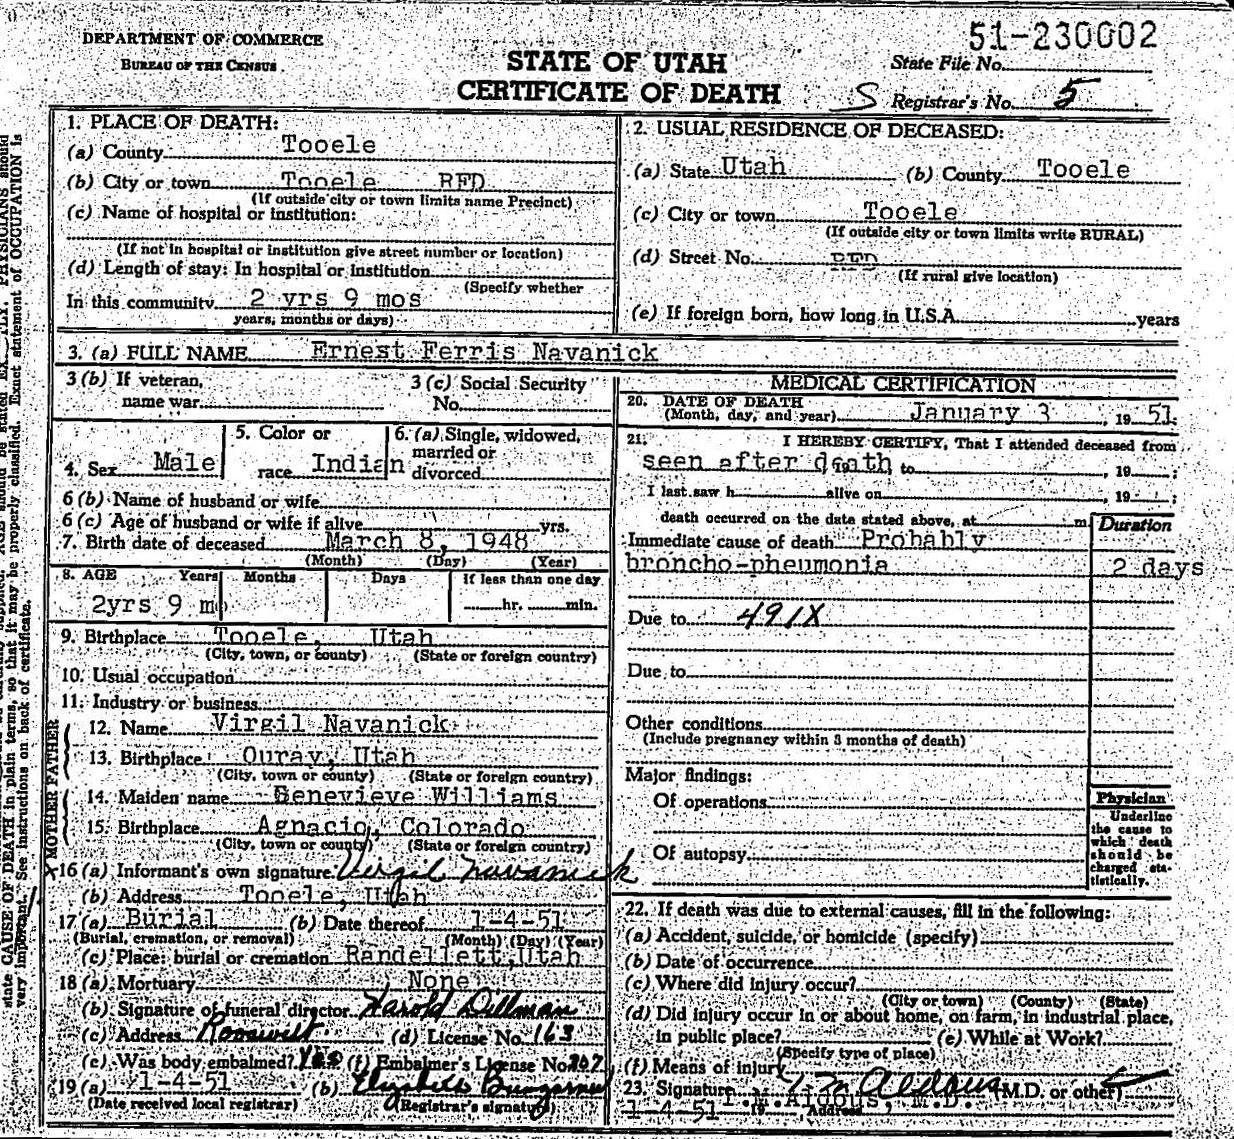 DEPARTMENT OF COMMERCE
BUREAU OF THE CENSUS
STATE OF UTAH
CERTIFICATE OF DEATH
51-230002
State File No.
S Registrar's No. 5
1. PLACE OF DEATH:
(a) County Tooele
(b) City or town Tooele RFD
(If outside city or town limits name Precinct)
(c) Name of hospital or institution:
(If not in hospital or institution give street number or location)
(d) Length of stay: In hospital or institution
(Specify whether
In this community 2 yrs 9 mos
years, months or days)
2. USUAL RESIDENCE OF DECEASED:
(a) State Utah (b) County Tooele
(c) City or town Tooele
(If outside city or town limits write RURAL)
(d) Street No. RFD
(If rural give location)
(e) If foreign born, how long in U.S.A. years
3. (a) FULL NAME Ernest Ferris Navanick
3 (b) If veteran,
name war
3 (c) Social Security
No.
4. Sex Male
5. Color or
race Indian
6. (a) Single, widowed,
married or
divorced
6 (b) Name of husband or wife
6 (c) Age of husband or wife if alive yrs.
7. Birth date of deceased March 8, 1948
(Month) (Day) (Year)
8. AGE Years Months Days If less than one day
2yrs 9 mo hr. min.
9. Birthplace Tooele, Utah
(City, town, or county) (State or foreign country)
10. Usual occupation
11. Industry or business
FATHER
12. Name Virgil Navanick
13. Birthplace Ouray, Utah
(City, town or county) (State or foreign country)
MOTHER
14. Maiden name Genevieve Williams
15. Birthplace Agnacio, Colorado
(City, town or county) (State or foreign country)
X 16 (a) Informant's own signature Virgil Navanick
(b) Address Tooele, Utah
17 (a) Burial (b) Date thereof 1-4-51
(Burial, cremation, or removal) (Month) (Day) (Year)
(c) Place: burial or cremation Randellett, Utah
18 (a) Mortuary None
(b) Signature of funeral director Harold Dillman
(c) Address Roosevelt (d) License No. 163
(e) Was body embalmed? Yes (f) Embalmer's License No. 207
19 (a) 1-4-51 (b) Elizabeth
(Date received local registrar) (Registrar's signature)
MEDICAL CERTIFICATION
20. DATE OF DEATH
(Month, day, and year) January 3, 1951.
21. I HEREBY CERTIFY, That I attended deceased from
seen after death to , 19 ;
I last saw h alive on , 19 ;
death occurred on the date stated above, at m.
Duration
Immediate cause of death Probably
broncho-pneumonia 2 days
Due to 491X
Due to
Other conditions
(Include pregnancy within 3 months of death)
Major findings:
Of operations
Of autopsy
Physician
Underline
the cause to
which death
should be
charged sta-
tistically.
22. If death was due to external causes, fill in the following:
(a) Accident, suicide, or homicide (specify)
(b) Date of occurrence
(c) Where did injury occur?
(City or town) (County) (State)
(d) Did injury occur in or about home, on farm, in industrial place,
in public place? (e) While at Work?
(Specify type of place)
(f) Means of injury
23. Signature T.M. Aldous (M.D. or other)
T.M. Aldous, M.D.
1-4-51 19 Address
state CAUSE OF DEATH in plain terms, so that it may be properly classified. Exact statement of OCCUPATION is
very important. See instructions on back of certificate.